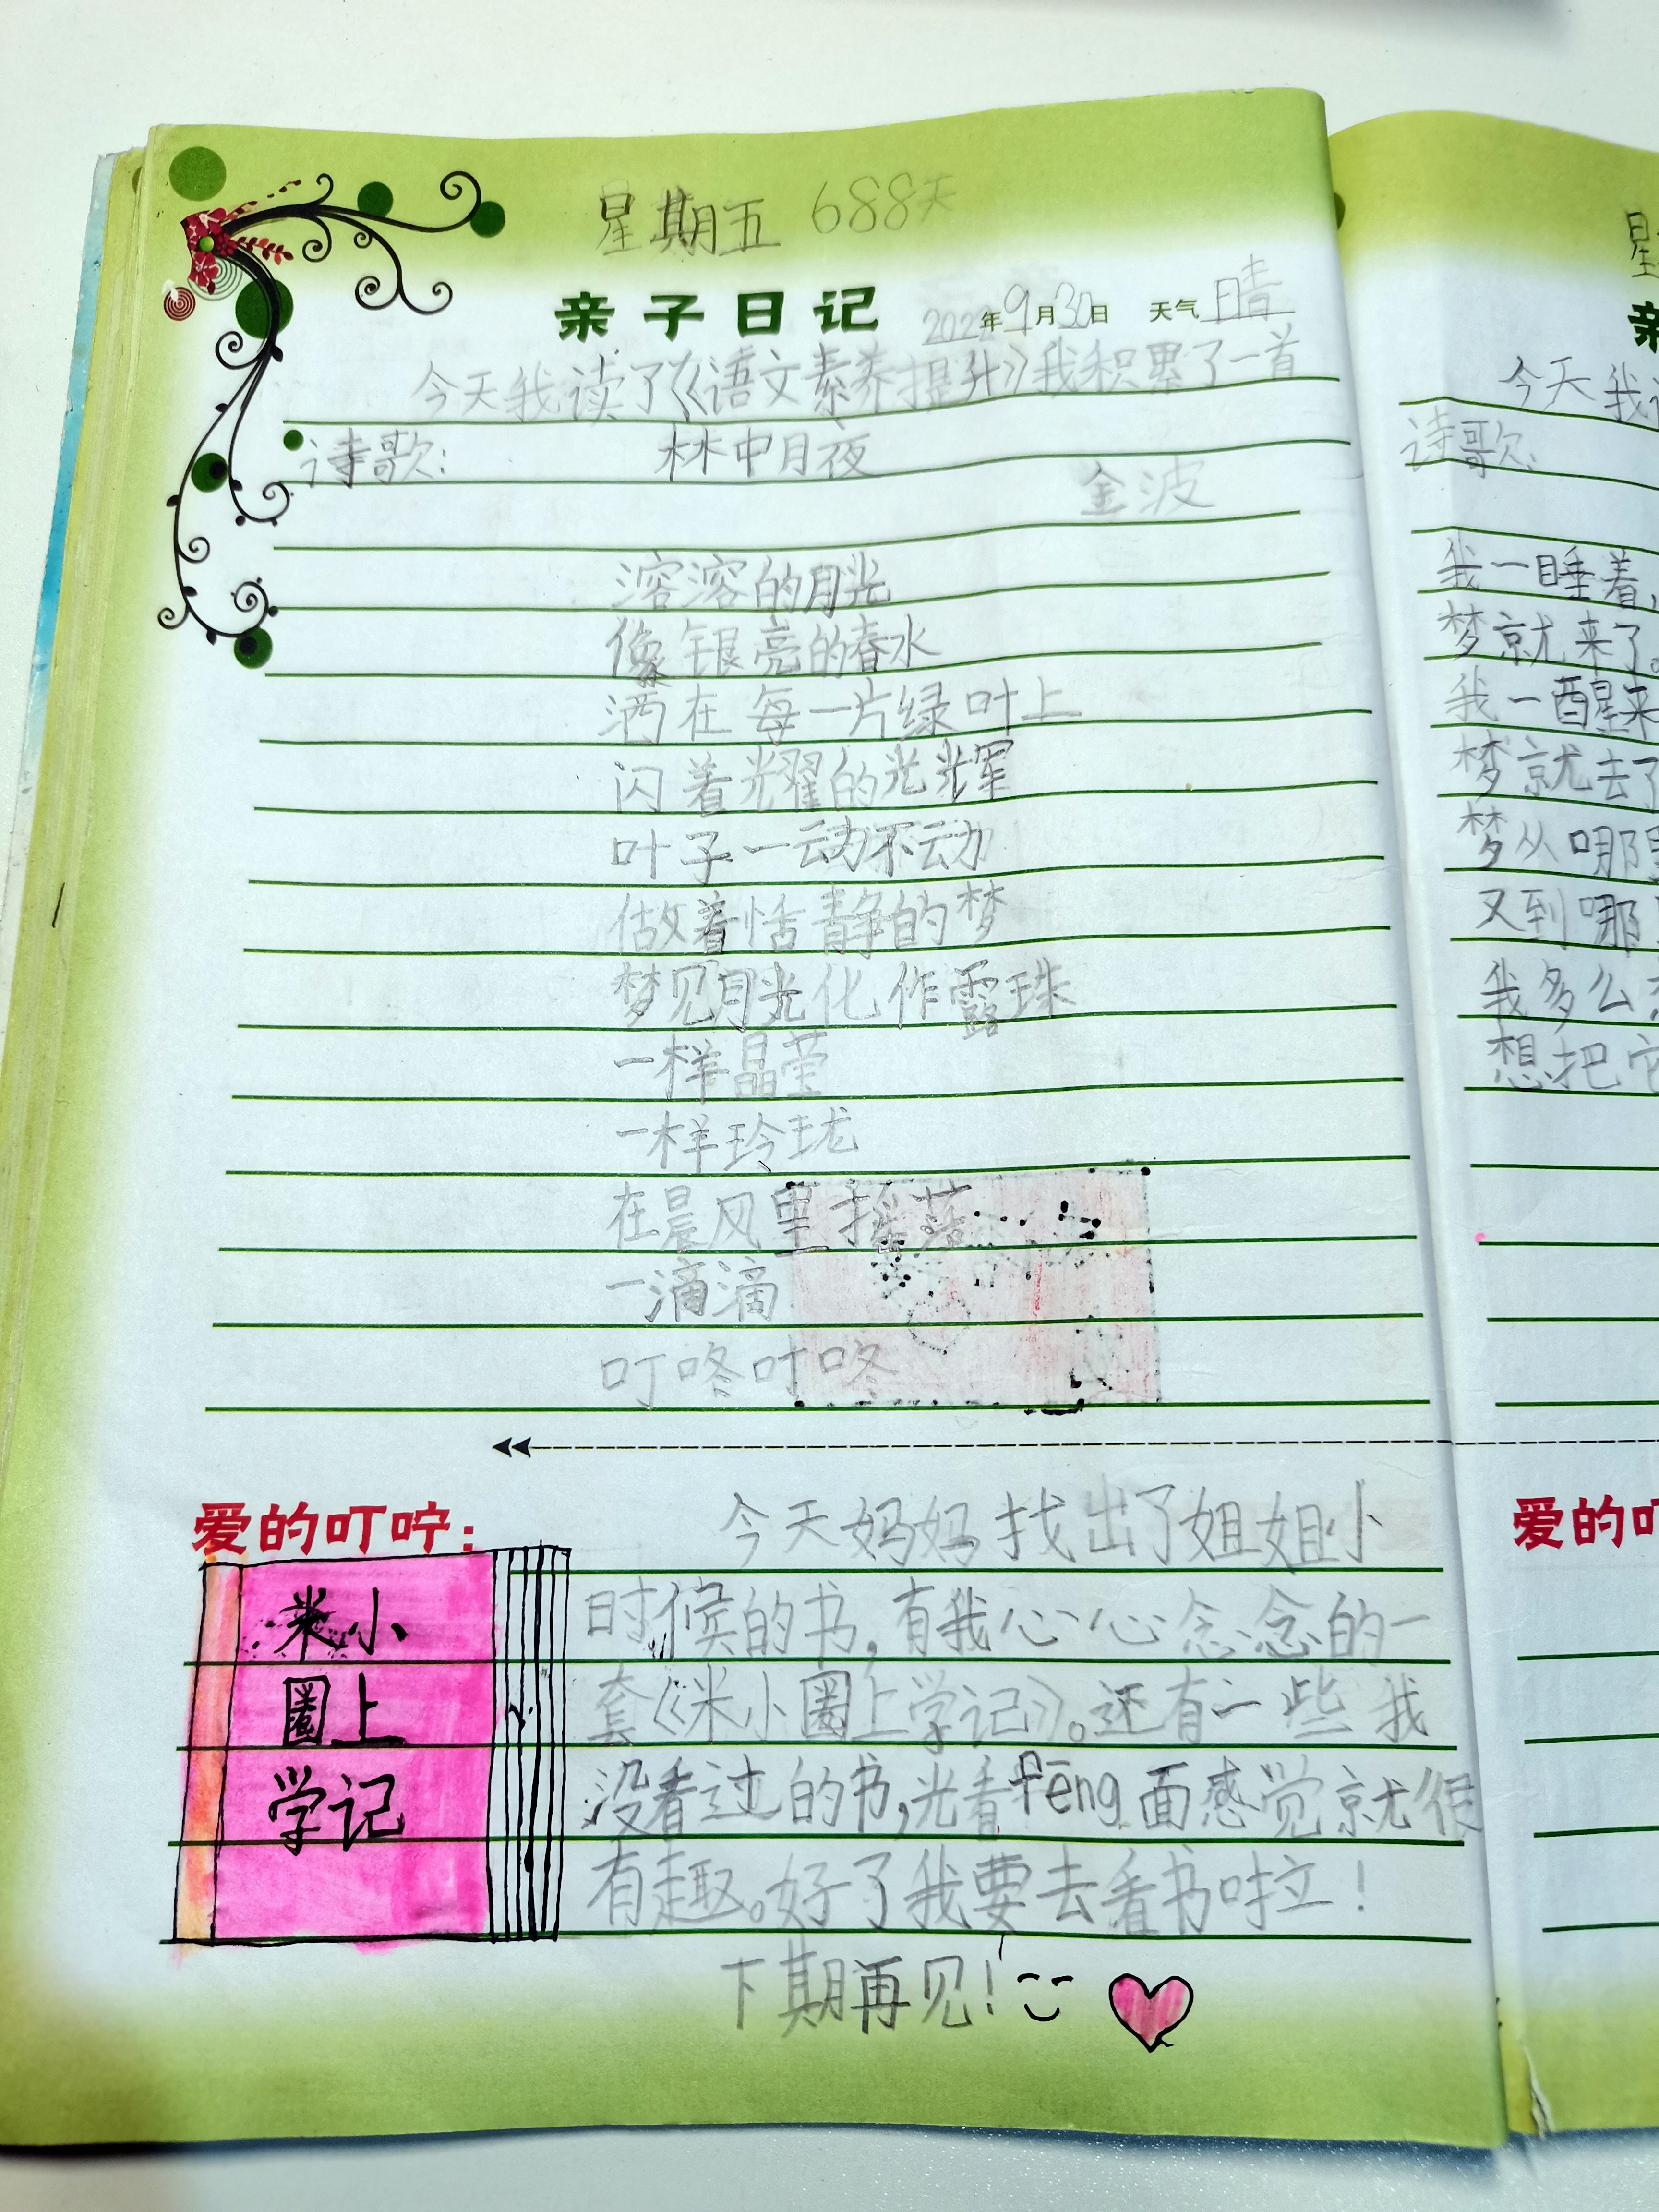 星期五 688天
亲子日记 2022年9月30日 天气 晴
今天我读了《语文素养提升》我积累了一首
诗歌: 林中月夜
金波
溶溶的月光
像银亮的春水
洒在每一片绿叶上
闪着光耀的光辉
叶子一动不动
做着恬静的梦
梦见月光化作露珠
一样晶莹
一样玲珑
在晨风里摇落
一滴滴
叮咚叮咚
爱的叮咛:
今天妈妈找出了姐姐小
时候的书,有我心心念念的一
套《米小圈上学记》。还有一些我
没看过的书,光看fēng面感觉就很
有趣。好了我要去看书啦!
下期再见!
米小
圈上
学记
星
亲
今天我
诗歌:
我一睡着,
梦就来了。
我一醒来
梦就去了
梦从哪里
又到哪
我多么
想把它
爱的叮